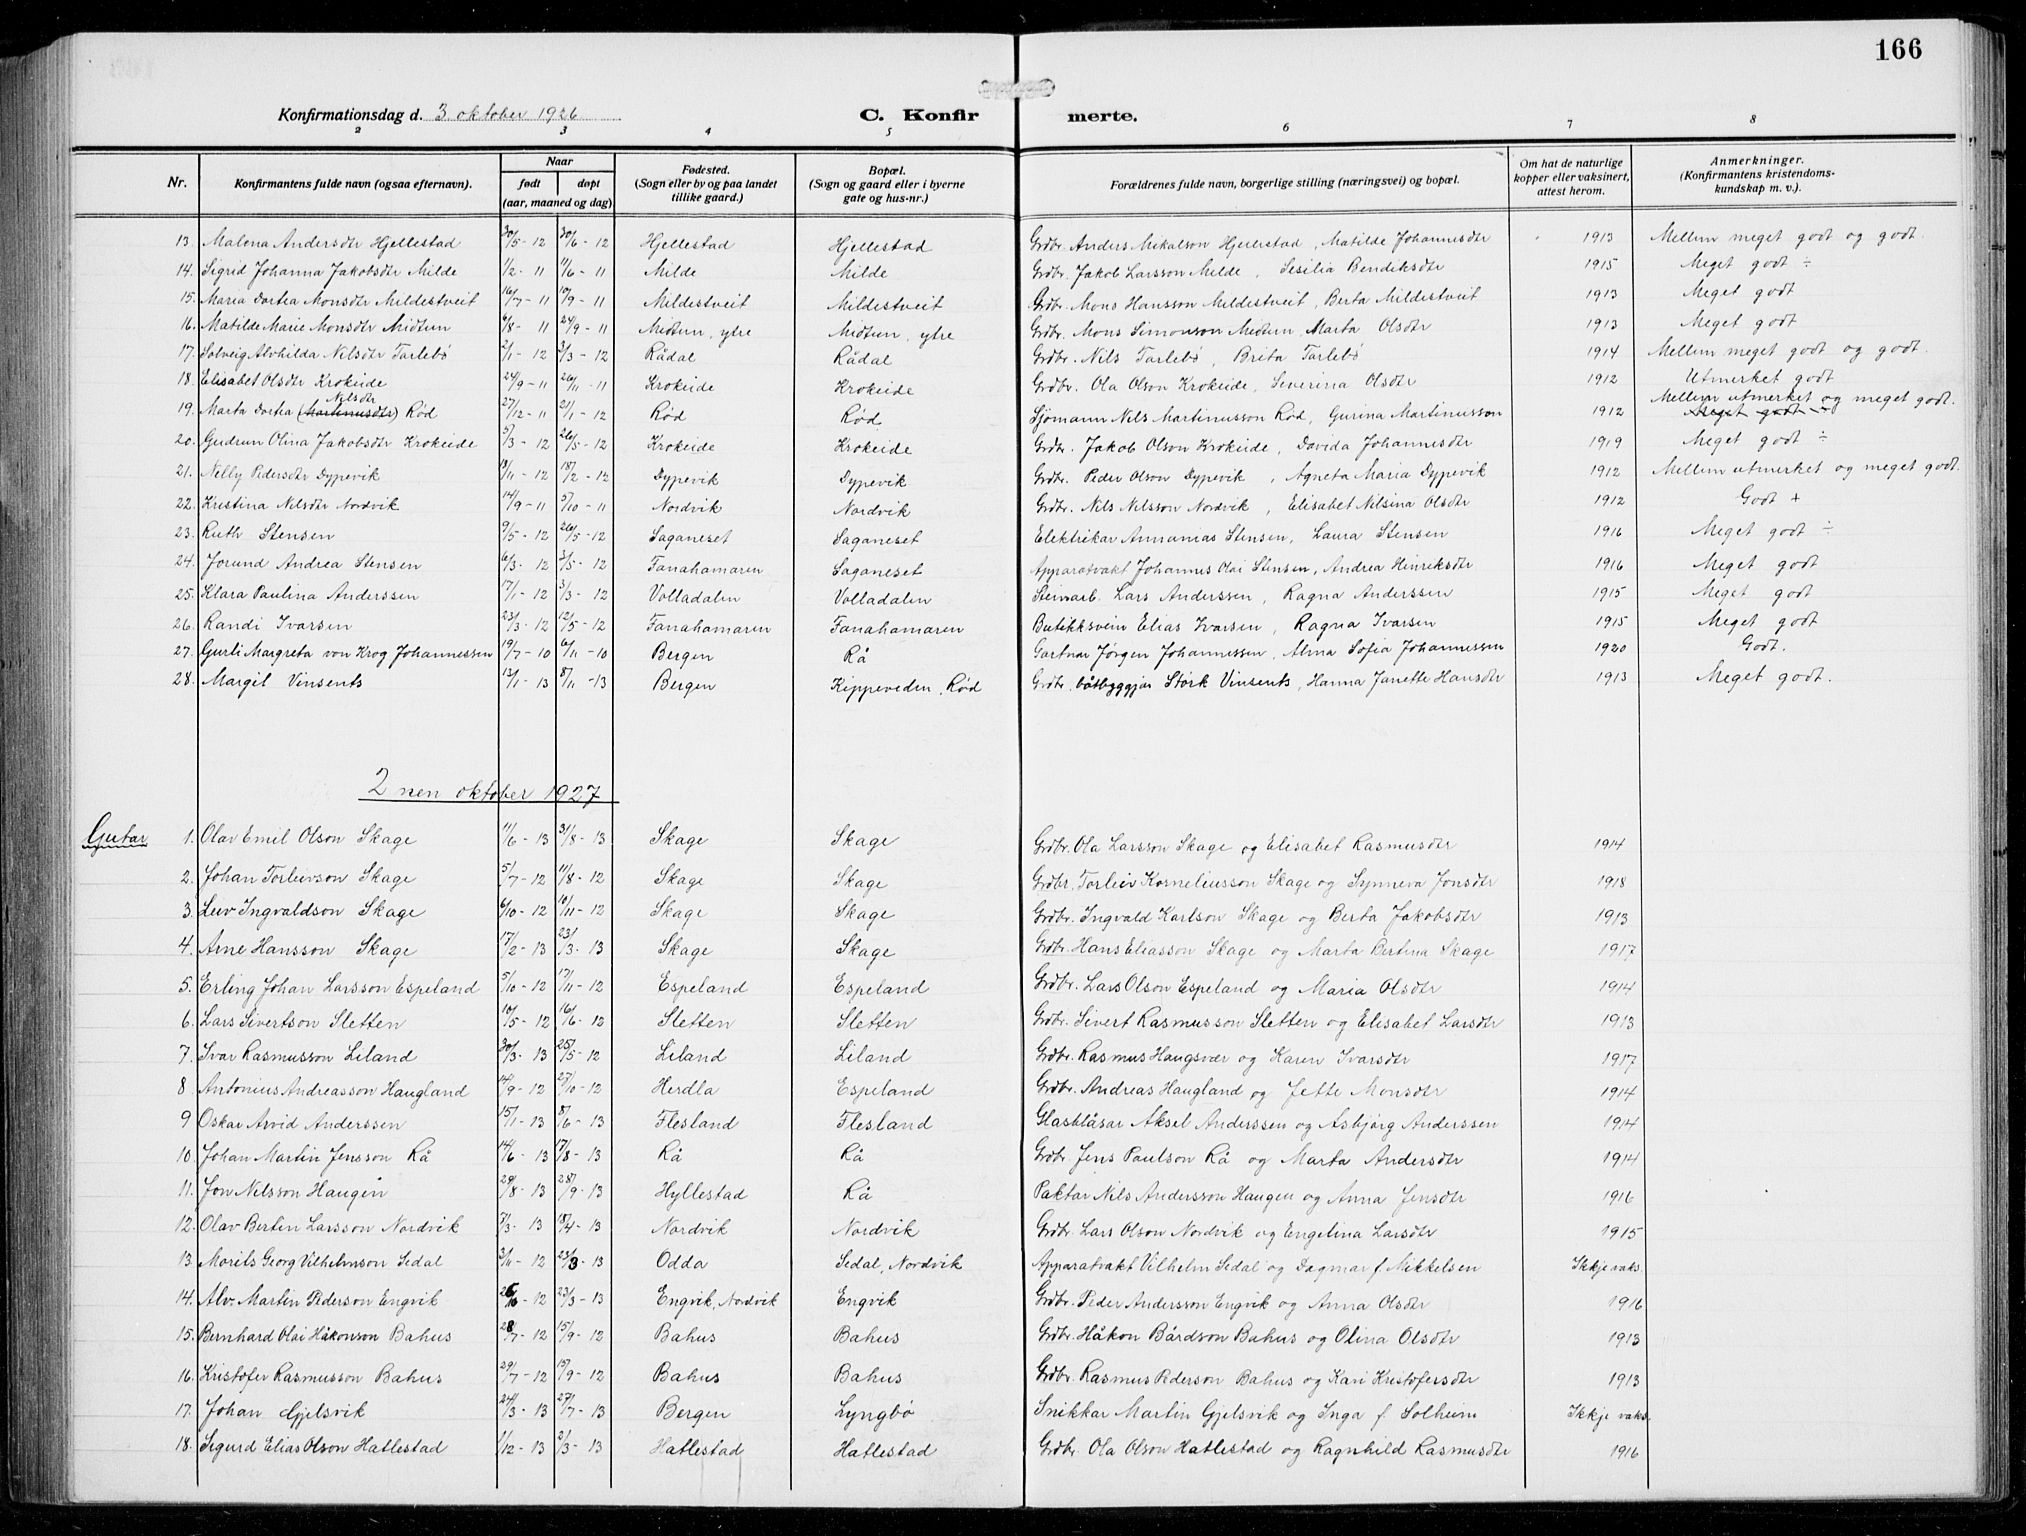 166
Konfirmationsdag d. 3. oktober 1926 C. Konfirmerte.
2 3 4 5 6 7 8
Nr. Konfirmantens fulde navn (ogsaa efternavn). Naar født døpt (aar, maaned og dag) Fødested. (Sogn eller by og paa landet tillike gaard.) Bopæl. (Sogn og gaard eller i byerne gate og hus-nr.) Forældrenes fulde navn, borgerlige stilling (næringsvei) og bopæl. Om hat de naturlige kopper eller vaksinert, attest herom. Anmerkninger. (Konfirmantens kristendoms-kundskap m. v.).
13. Malena Andersdtr Hjellestad 30/5 - 12 30/6 - 12 Hjellestad Hjellestad Grdbr. Anders Mikalson Hjellestad, Matilde Johannesdtr 1913 Mellem meget godt og godt.
14. Sigrid Johanna Jakobsdtr Milde 1/2 - 11 11/6 - 11 Milde Milde Grdbr. Jakob Larsson Milde, Sesilia Bendiksdtr 1915 Meget godt ÷
15. Maria Dortea Monsdtr Mildestveit 16/7 - 11 10/9 - 11 Mildestveit Mildestveit Grdbr. Mons Hansson Mildestveit, Berta Mildestveit 1913 Meget godt
16. Matilde Marie Monsdtr Midtun 6/8 - 11 24/9 - 11 Midtun, ytre Midtun, ytre Grdbr. Mons Simonson Midtun, Marta Olsdtr 1913 Meget godt
17. Solveig Alvhilda Nilsdtr Tarlebø 2/1 - 12 3/3 - 12 Rådal Rådal Grdbr. Nils Tarlebø, Brita Tarlebø 1914 Mellem meget godt og godt.
18. Elisabet Olsdtr Krokeide 24/9 - 11 26/11 - 11 Krokeide Krokeide Grdbr. Ola Olson Krokeide, Severina Olsdtr 1912 Utmerket godt
19. Marta Dortea (Martinusdtr) Nilsdtr Rød 27/12 - 11 21/1 - 12 Rød Rød Sjømann Nils Martinusson Rød, Gurina Martinusson 1912 Mellem utmerket og meget godt. Meget godt
20. Gudrun Olina Jakobsdtr Krokeide 5/3 - 12 26/5 - 12 Krokeide Krokeide Grdbr. Jakob Olson Krokeide, Davida Johannesdtr 1919 Meget godt ÷
21. Nelly Pedersdtr Dypevik 19/11 - 12 18/2 - 12 Dypevik Dypevik Grdbr. Peder Olson Dypevik, Agneta Maria Dypevik 1912 Mellem utmerket og meget godt.
22. Kristina Nilsdtr Nordvik 14/9 - 11 5/10 - 11 Nordvik Nordvik Grdbr. Nils Nilsson Nordvik, Elisabet Nilsina Olsdtr 1912 Godt +
23. Ruth Stensen 9/5 - 12 26/5 - 12 Saganeset Saganeset Elektrikar Annanias Stensen, Laura Stensen 1916 Meget godt ÷
24. Jorund Andrea Stensen 6/3 - 12 3/5 - 12 Fanahamaren Saganeset Apparatvakt Johannes Olai Stensen, Andrea Hinriksdtr 1916 Meget godt
25. Klara Paulina Anderssen 17/1 - 12 3/3 - 12 Volladalen Volladalen Steinarb. Lars Anderssen, Ragna Anderssen 1915 Meget godt
26. Randi Ivarsen 23/3 - 12 12/5 - 12 Fanahamaren Fanahamaren Butikksvein Elias Ivarsen, Ragna Ivarsen 1915 Meget godt
27. Gurli Margreta von Krog Johannessen 19/7 - 10 6/11 - 10 Bergen Rå Gartnar Jørgen Johannessen, Alma Sofia Johannessen 1920 Godt.
28. Margit Vinsents 13/1 - 13 8/11 - 13 Bergen Kippeveden, Rød Grdbr. båtbyggjar Störk Vinsents, Hanna Janette Hansdtr 1913 Meget godt.
2 nen oktober 1927
Gutar 1. Olav Emil Olson Skage 11/6 - 13 31/8 - 13 Skage Skage Grdbr. Ola Larsson Skage og Elisabet Rasmusdtr 1914
2. Johan Torleivson Skage 5/7 - 12 11/8 - 12 Skage Skage Grdbr. Torleiv Korneliusson Skage og Synneva Jonsdtr 1918
3. Leiv Ingvaldson Skage 6/10 - 12 10/11 - 12 Skage Skage Grdbr. Ingvald Karlson Skage og Berta Jakobsdtr 1913
4. Arne Hansson Skage 17/2 - 13 23/3 - 13 Skage Skage Grdbr. Hans Eliasson Skage og Marta Bertina Skage 1917
5. Erling Johan Larsson Espeland 5/10 - 12 17/11 - 12 Espeland Espeland Grdbr. Lars Olson Espeland og Maria Olsdtr 1914
6. Lars Sivertson Sletten 10/5 - 12 16/6 - 12 Sletten Sletten Grdbr. Sivert Rasmusson Sletten og Elisabet Larsdtr 1913
7. Ivar Rasmusson Liland 30/3 - 13 25/5 - 12 Liland Liland Grdbr. Rasmus Haugsvær og Karen Ivarsdtr 1917
8 Antonius Andreasson Haugland 14/9 - 12 27/10 - 12 Herdla Espeland Grdbr. Andreas Haugland og Jette Monsdtr 1914
9 Oskar Arvid Anderssen 15/1 - 13 8/6 - 13 Flesland Flesland Glasblåsar Aksel Anderssen og Asbjørg Anderssen 1914
10. Johan Martin Jensson Rå 14/6 - 13 17/8 - 13 Rå Rå Grdbr. Jens Paulson Rå og Marta Andersdtr 1914
11. Jon Nilsson Haugen 29/8 - 13 28/9 - 13 Hyllestad Rå Paktar Nils Andersson Haugen og Anna Jensdtr 1916
12. Olav Bertin Larsson Nordvik 7/3 - 13 18/4 - 13 Nordvik Nordvik Grdbr. Lars Olson Nordvik og Engelina Larsdtr 1915
13. Morits Georg Vilhelmson Sedal 3/11 - 12 23/3 - 13 Odda Sedal, Nordvik Apparatvakt Vilhelm Sedal og Dagmar f. Mikkelsen Ikkje vaks.
14. Alv. Martin Pederson Engvik 26/10 - 12 23/3 - 13 Engvik, Nordvik Engvik Grdbr. Peder Andersson Engvik og Anna Olsdtr 1916
15. Bernhard Olai Håkonson Bahus 28/7 - 12 15/9 - 12 Bahus Bahus Grdbr. Håkon Bårdson Bahus og Olina Olsdtr 1913
16. Kristofer Rasmusson Bahus 29/7 - 12 15/9 - 12 Bahus Bahus Grdbr. Rasmus Pederson Bahus og Kari Kristofersdtr 1913
17. Johan Gjelsvik 24/3 - 13 27/7 - 13 Bergen Lyngbø Snikkar Martin Gjelsvik og Inga f. Solheim Ikkje vaks.
18. Sigurd Elias Olson Hatlestad 1/12 - 13 2/3 - 13 Hatlestad Hatlestad Grdbr. Ola Olson Hatlestad og Ragnhild Rasmusdtr 1916